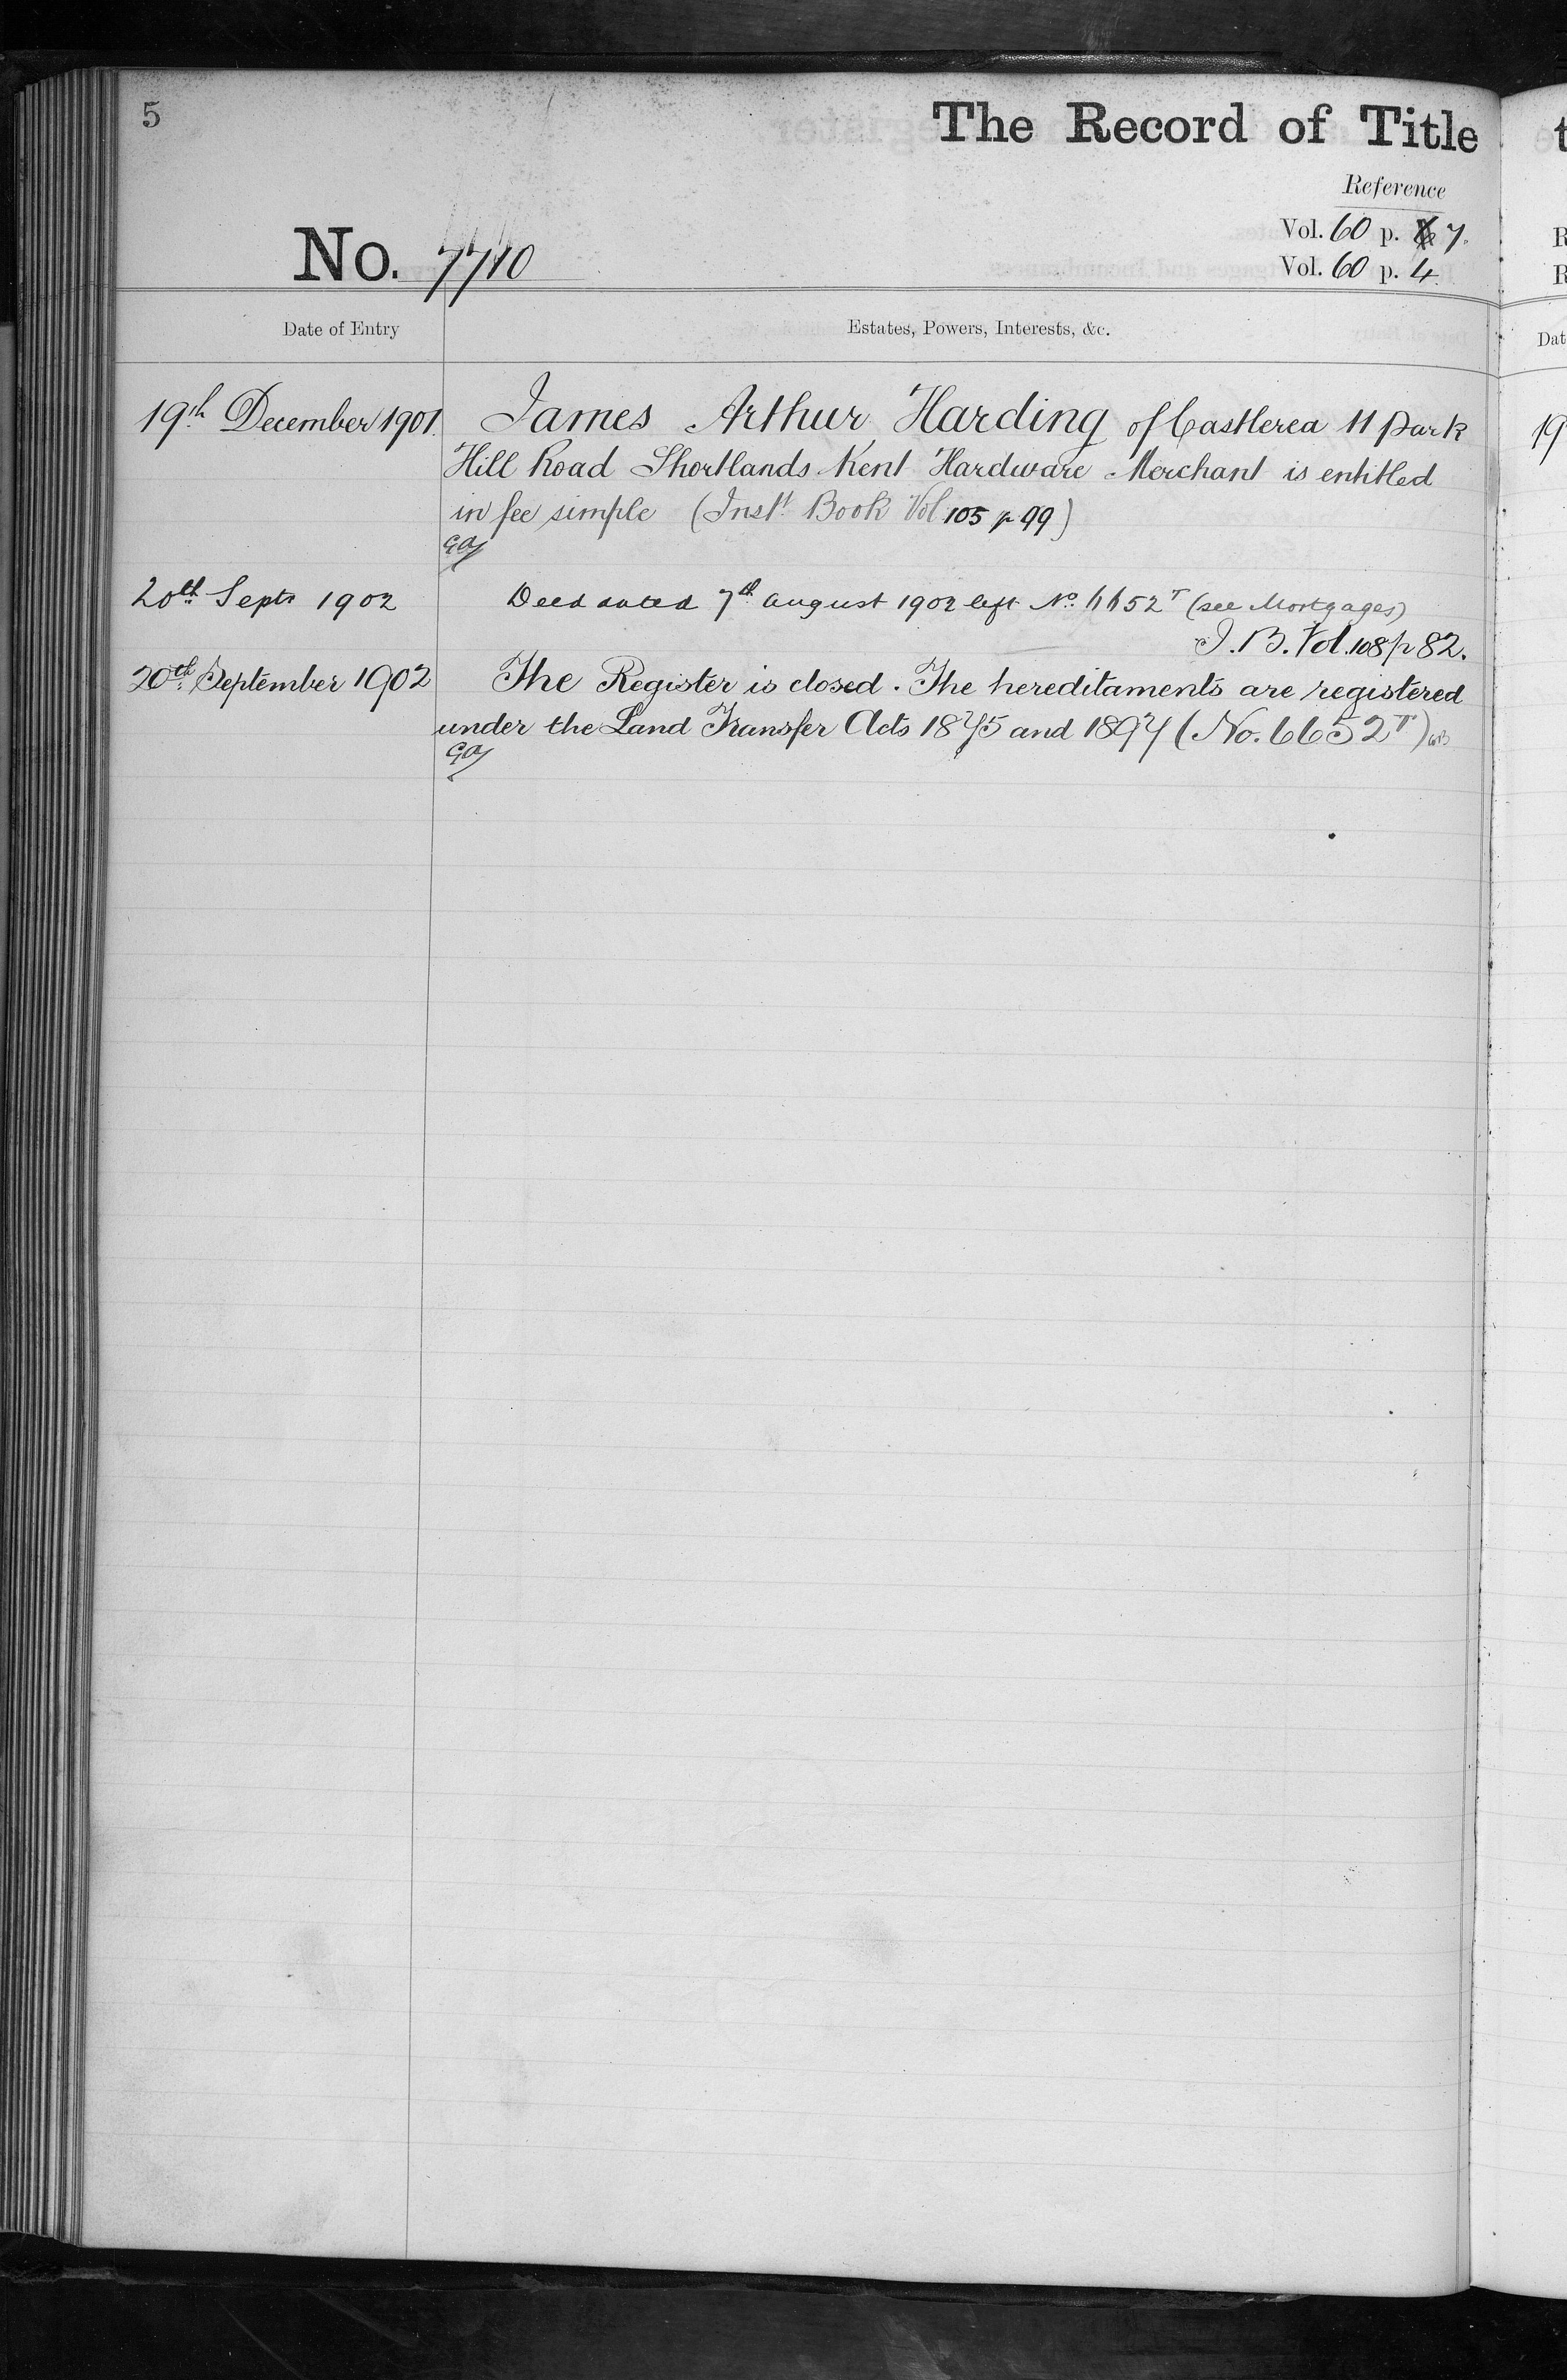 5
The Record of Title
Reference
Vol. 60 p. 7.
Vol. 60 p. 4.
No. 7710
Date of Entry
Estates, Powers, Interests, &c.
19th December 1901. James Arthur Harding of Castlerea 11 Park
Hill Road Shortlands Kent Hardware Merchant is entitled
in fee simple (Inst. Book Vol 105 p 99)
20th Septr 1902 Deed dated 7th August 1902 left No. 6652T (see Mortgages)
I.B. Vol. 108 p 82.
20th September 1902 The Register is closed. The hereditaments are registered
under the Land Transfer Acts 1875 and 1897 (No. 6652T)